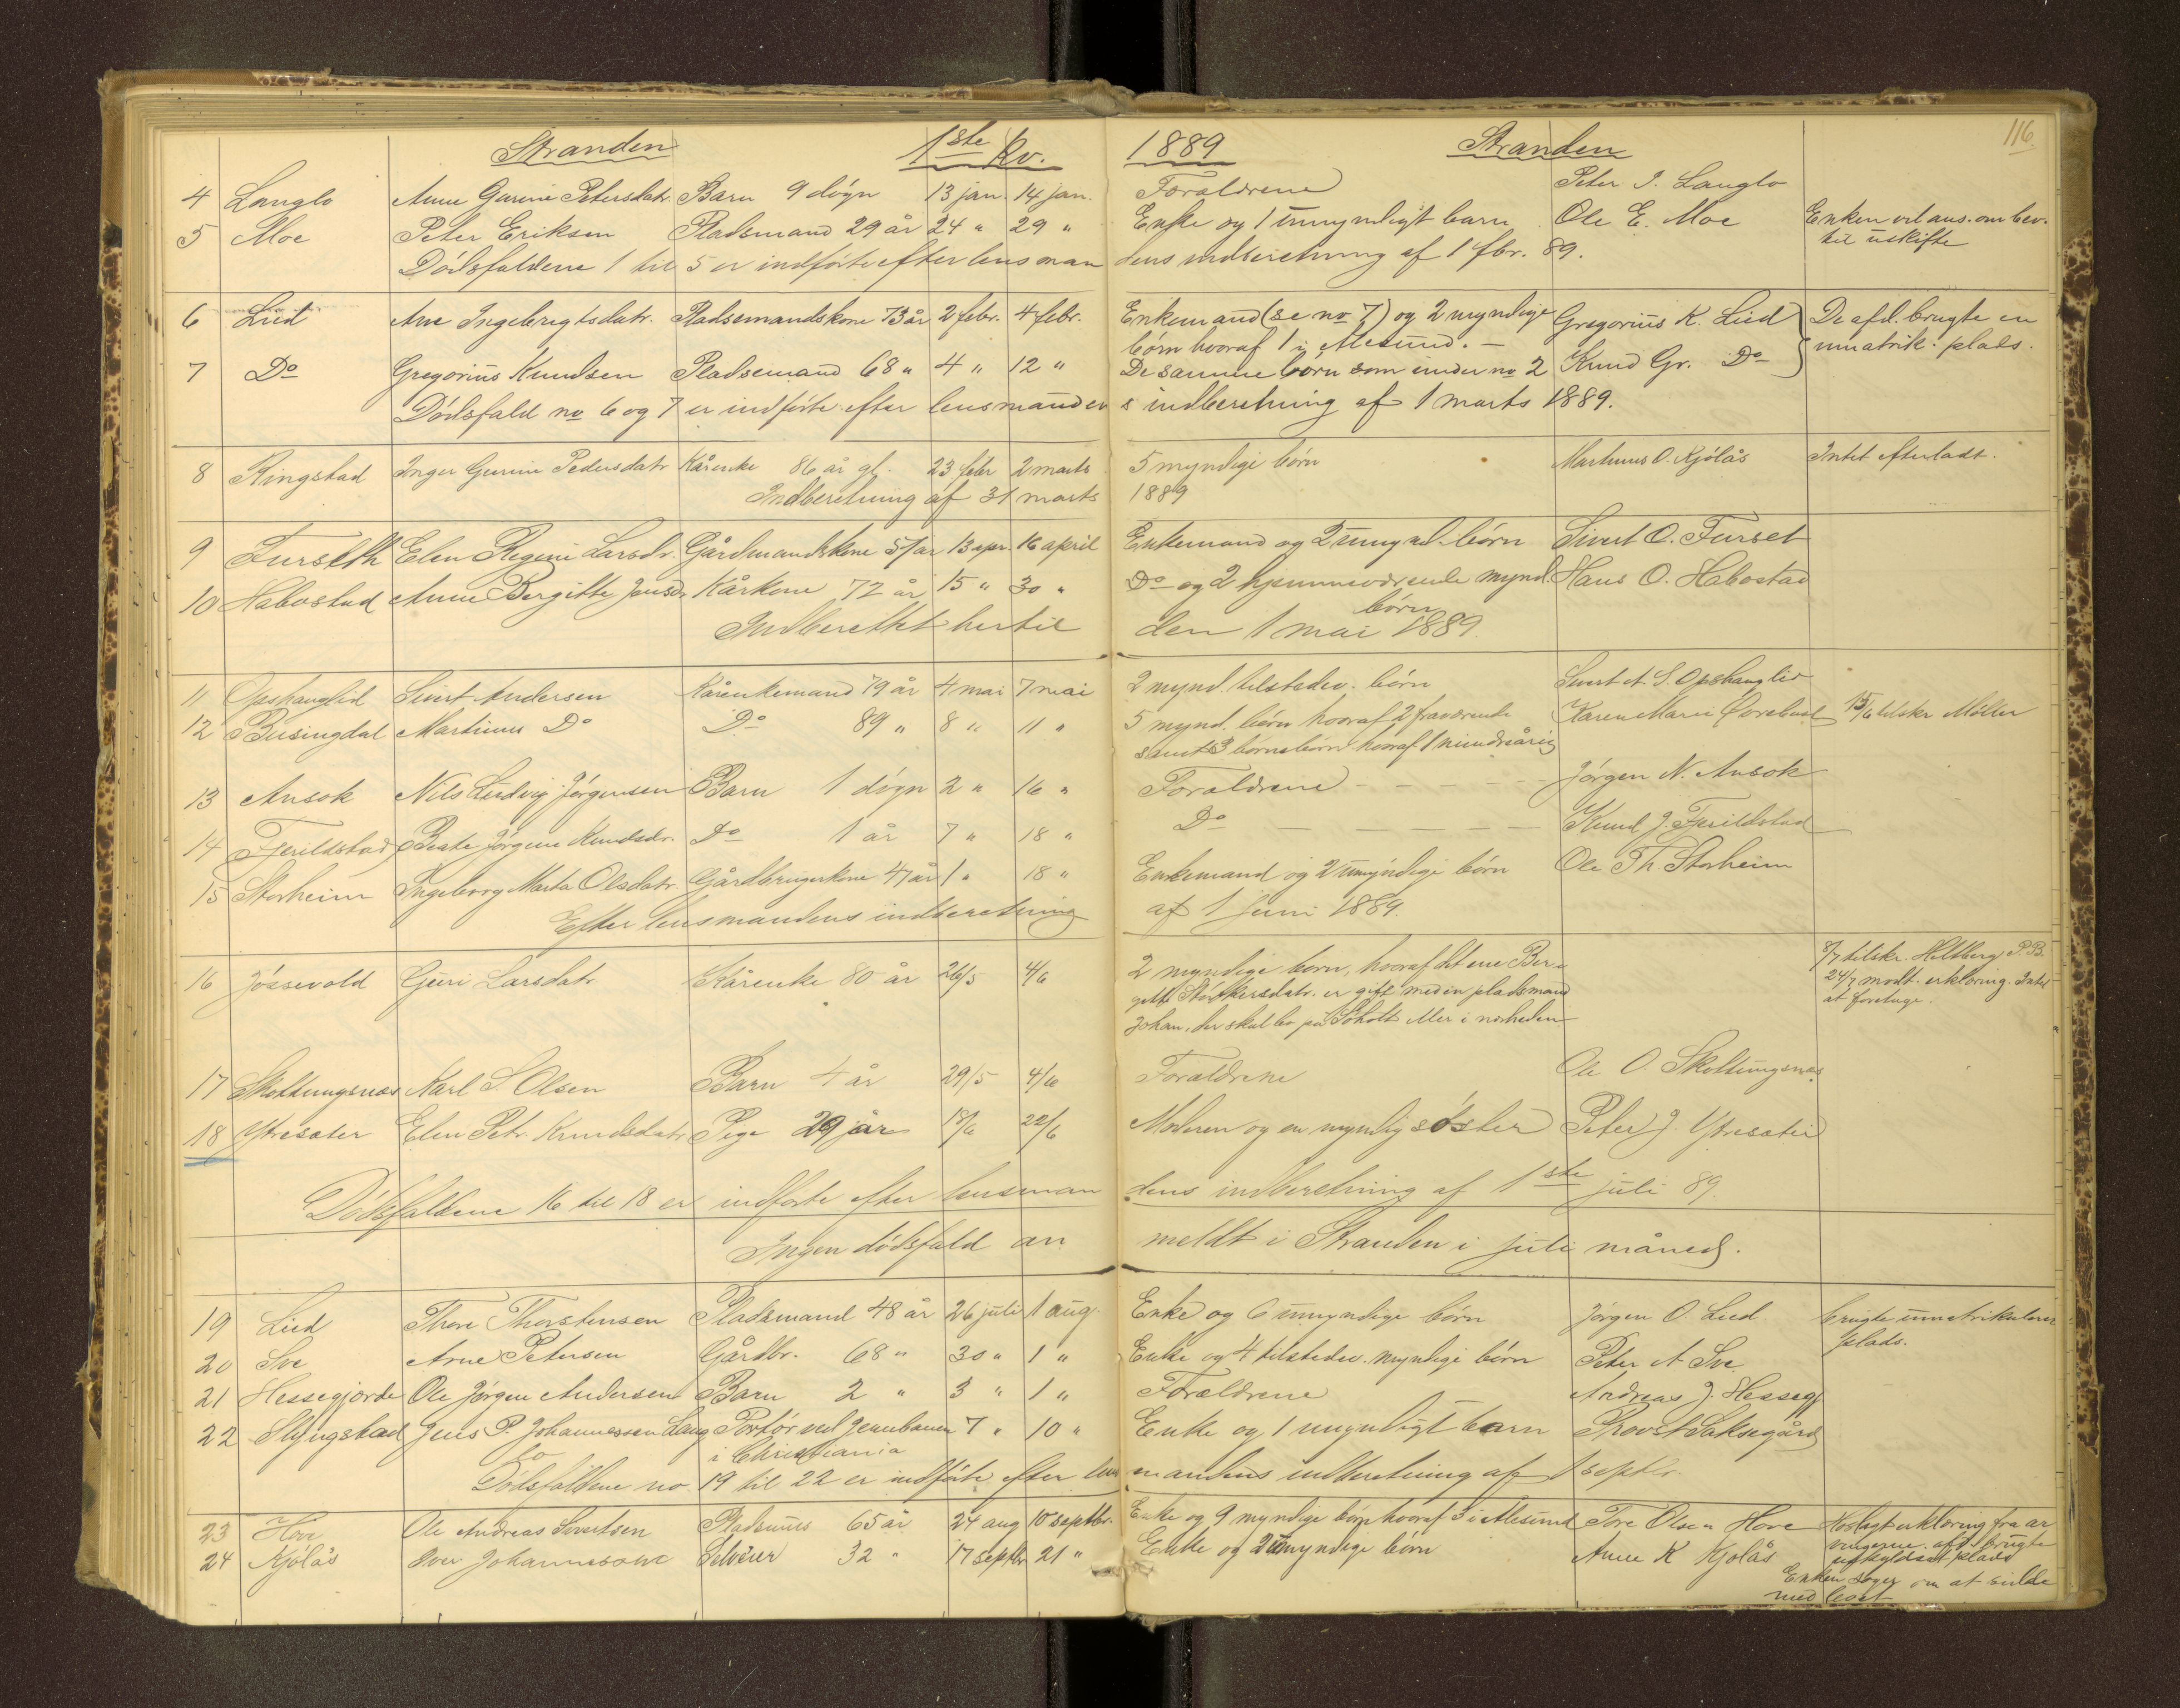 116.
Stranden 1ste Kv. 1889 Stranden
4 Langlo Anne Gurine Petersdatr. Barn 9 døgn 13 jan. 14 jan. Forældrene Peter J. Langlo
5 Moe Peter Eriksen Pladsmand 29 år 24 " 29 " Enke og 1 umyndigt barn Ole E. Moe Enken vil ans. om bev.
til uskifte
Dødsfaldene 1 til 5 er indførte efter lensmandens indberetning af 1 fbr. 89.
6 Lied Ane Ingebrigtsdatr. Pladsemandskone 73 år 2 febr. 4 febr. Enkemand (se no 7) og 2 myndige Gregorius K. Lied De afd. brugte en
børn hvoraf 1 i Alesund. — umatrik. plads.
7 Do Gregorius Knudsen Pladsemand 68 " 4 " 12 " De samme børn som under no 2 Knud Gr. Do
Dødsfald no 6 og 7 er indførte efter lensmandens indberetning af 1 marts 1889.
8 Ringstad Inger Gurine Pedersdatr Kårenke 86 år gl. 23 febr 2 marts 5 myndige børn Martinus O. Kjølås Intet efterladt.
Indberetning af 31 marts 1889
9 Furseth Elen Regine Larsdr. Gårdmandskone 51 år 13 apr. 16 april Enkemand og 2 umynd. børn Sivert O. Furset
10 Habostad Anne Bergitte Jensdr Kårkone 72 år 15 " 30 " Do og 2 hjemmeværende mynd. Hans O. Habostad
børn
Indberettet hertil den 1 mai 1889.
11 Opshauglid Sivert Andersen Kårenkemand 79 år 4 mai 7 mai 2 mynd. tilstedev. børn Sivert A. S. Opshauglid
12 Busingdal Martinus Do Do 89 " 8 " 11 " 5 mynd. børn hvoraf 2 fraværende Karen Marie Overbust 15/6 tilskr Møller
samt 3 børnebørn hvoraf 1 mindreårig
13 Ansok Nils Ludvig Jørgensen Barn 1 døgn 2 " 16 " Forældrene - - - - Jørgen N. Ansok
14 Fjerildstad Beate Jørgine Knudsdr. Do 1 år 7 " 18 " Do — — — — Knud J. Fjerildstad
15 Storheim Ingeborg Marta Olsdatr. Gårdbrugerkone 47 år 1 " 18 " Enkemand og 2 umyndige børn Ole Th Storheim
Efter lensmandens indberetning af 1 juni 1889.
16 Jøssevold Guri Larsdatr Kårenke 80 år 26/5 4/6 2 myndige børn, hvoraf det ene Ber- 8/7 tilskr. Heltberg P.B.
gethe Størkersdatr. er gift med en pladsmand 24/7 modt. erklæring. Intet
Johan, der skal bo på Søholt eller i nærheden at foretage.
17 Skottungsnæs Karl S. Olsen Barn 4 år 29/5 4/6 Forældrene Ole O. Skottungsnæs
18 Ytresæter Elen Petr. Knudsdatr Pige 29 år 18/6 22/6 Moderen og en myndig søster Peter J. Ytresæter
Dødsfaldene 16 til 18 er indførte efter lensmandens indberetning af 1ste juli 89.
Ingen dødsfald anmeldt i Stranden i juli måned.
19 Lied Thore Thorstensen Pladsmand 48 år 26 juli 1 aug. Enke og 6 umyndige børn Jørgen O. Lied. brugte umatrikuleret
plads.
20 Sve Arne Petersen Gårdbr. 68 " 30 " 1 " Enke og 4 tilstedev. myndige børn Peter A Sve
21 Hessegjorde Ole Jørgen Andersen Barn 2 " 3 " 1 " Forældrene Andreas J. Hessegj
22 Slyngstad Jens P. Johannessen Lang- Portør ved Jernbanen 7 " 10 " Enke og 1 umyndigt barn Provst Saksegård
lo i Christiania
Dødsfaldene no 19 til 22 er indførte efter lensmandens indberetning af 1 septbr.
23 Hove Ole Andreas Sivertsen 65 år 24 aug 10 septbr. Enke og 9 myndige børn hvoraf 3 i Alesund Tore Olsen Hove erklæring fra ar-
vingerne. afd. brugte
plads
24 Kjølås Iver Johannessen Selveier 32 " 17 septbr 21 " Enke og 2 umyndige børn Anne K Kjølås
Enken søger om at sidde
med boet